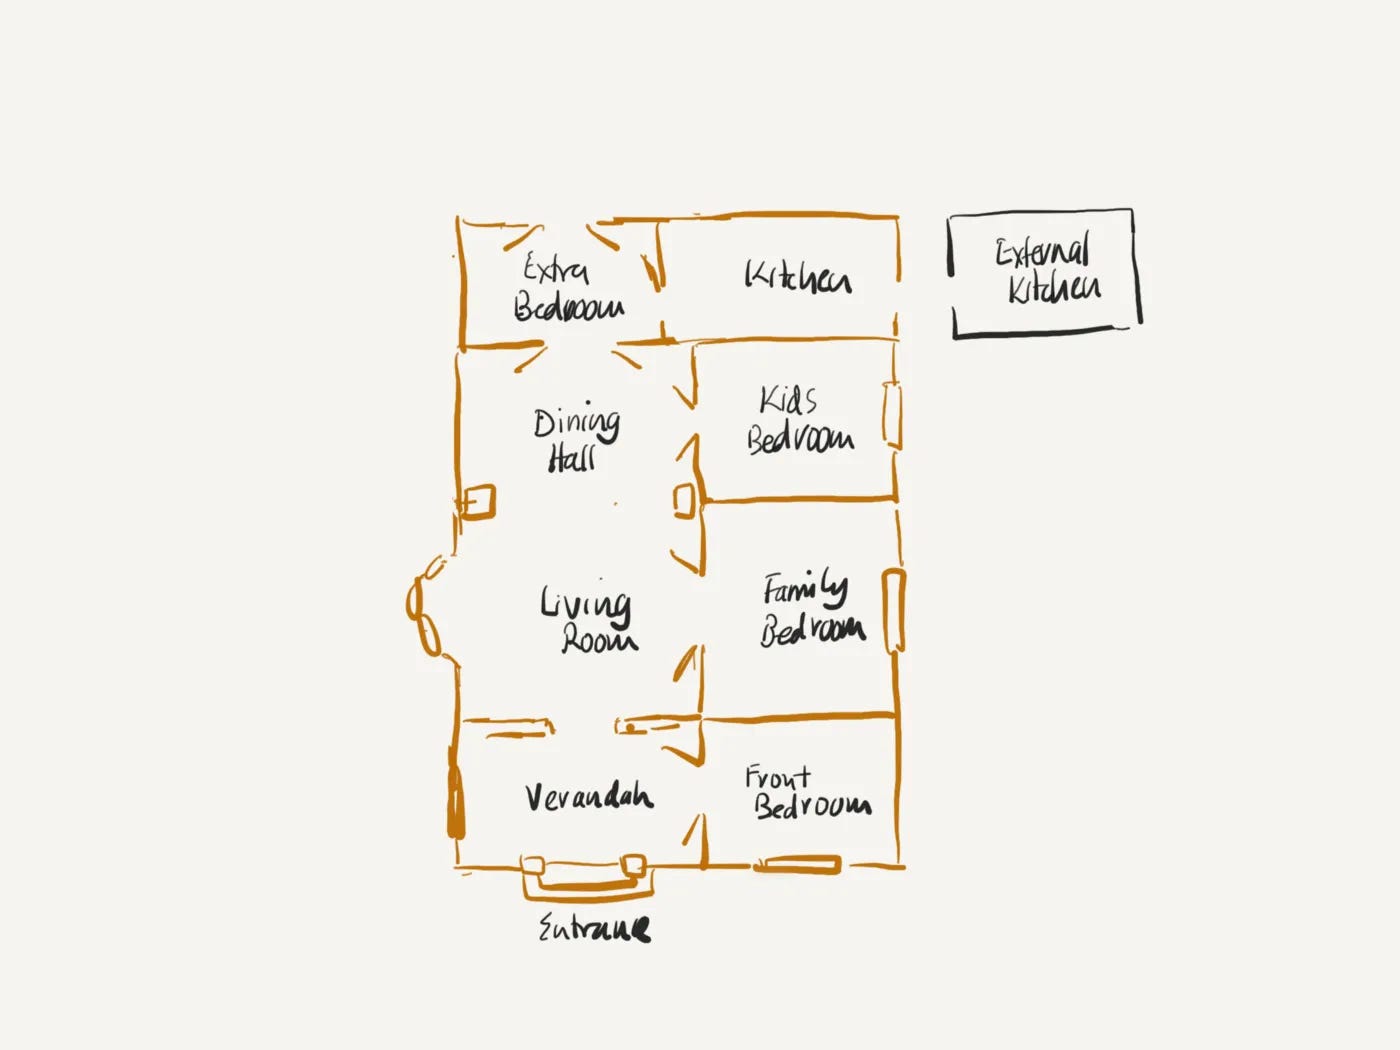 Extra
Bedroom
Kitchen
External
Kitchen
Dining
Hall
Kids
Bedroom
Living
Room
Family
Bedroom
Verandah
Front
Bedroom
Entrance